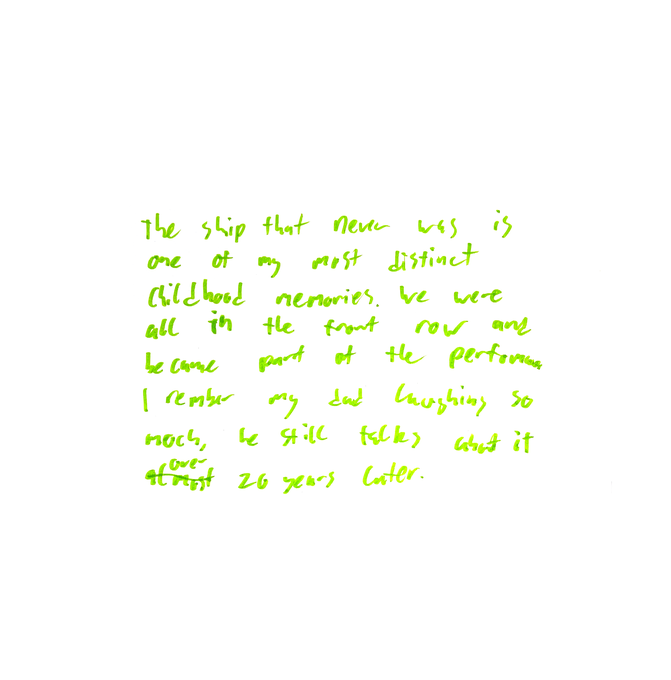 The ship that never was is
one of my most distinct
childhood memories. We were
all in the front row and
became part of the performance
I rember my dad laughing so
much, he still talks about it
over
almost 20 years later.